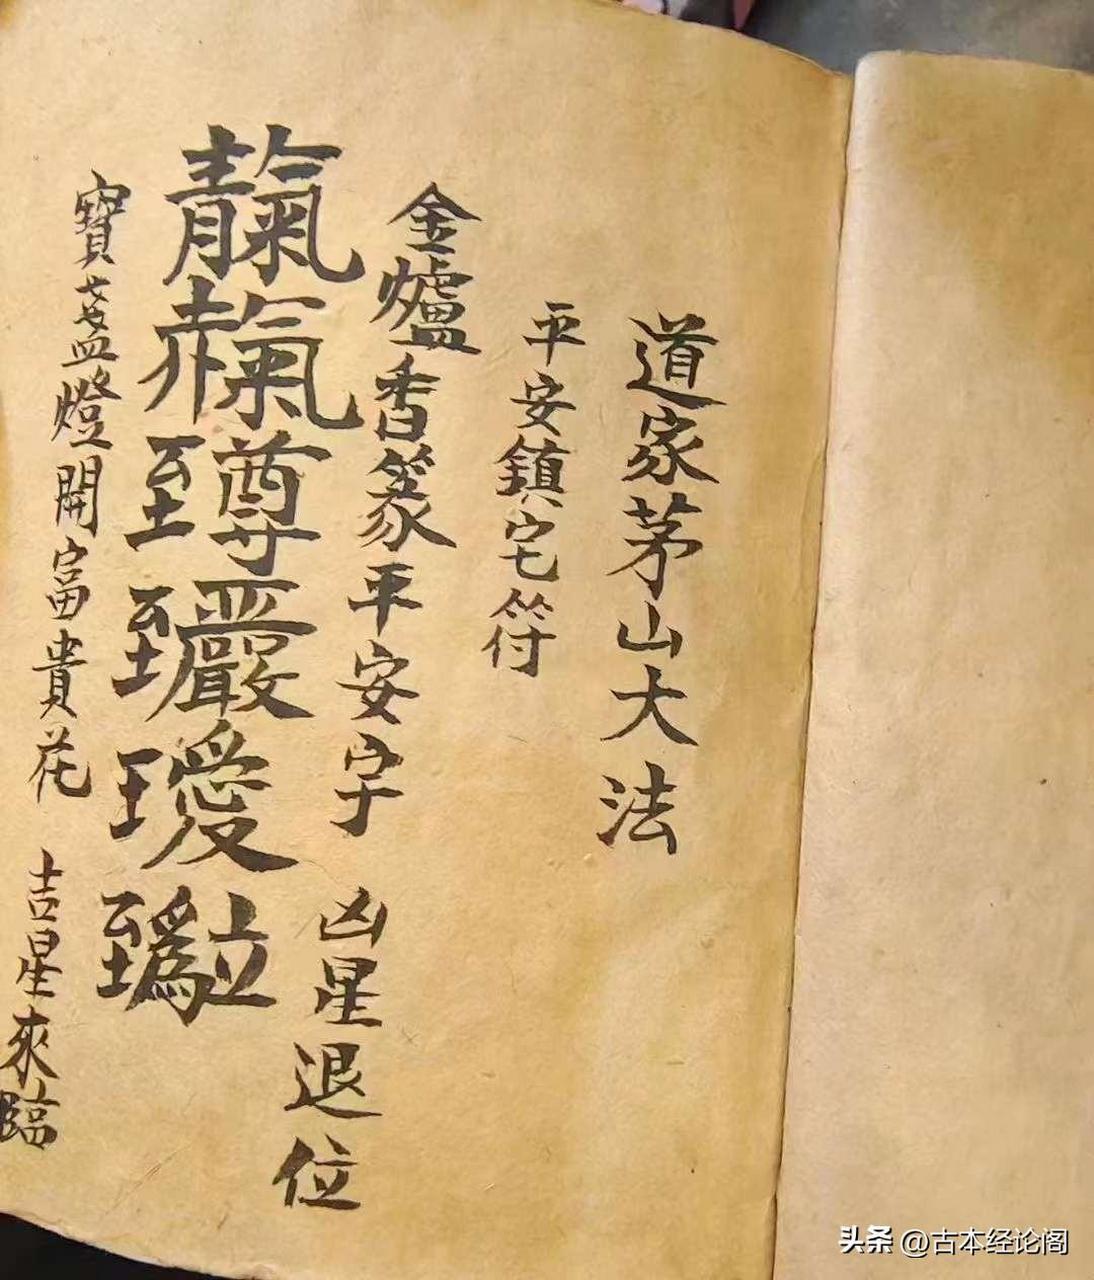 道家茅山大法
平安鎮宅符
金爐香篆平安字 凶星退位
寶蓋燈開富貴花 吉星來臨
头条 @古本经论阁